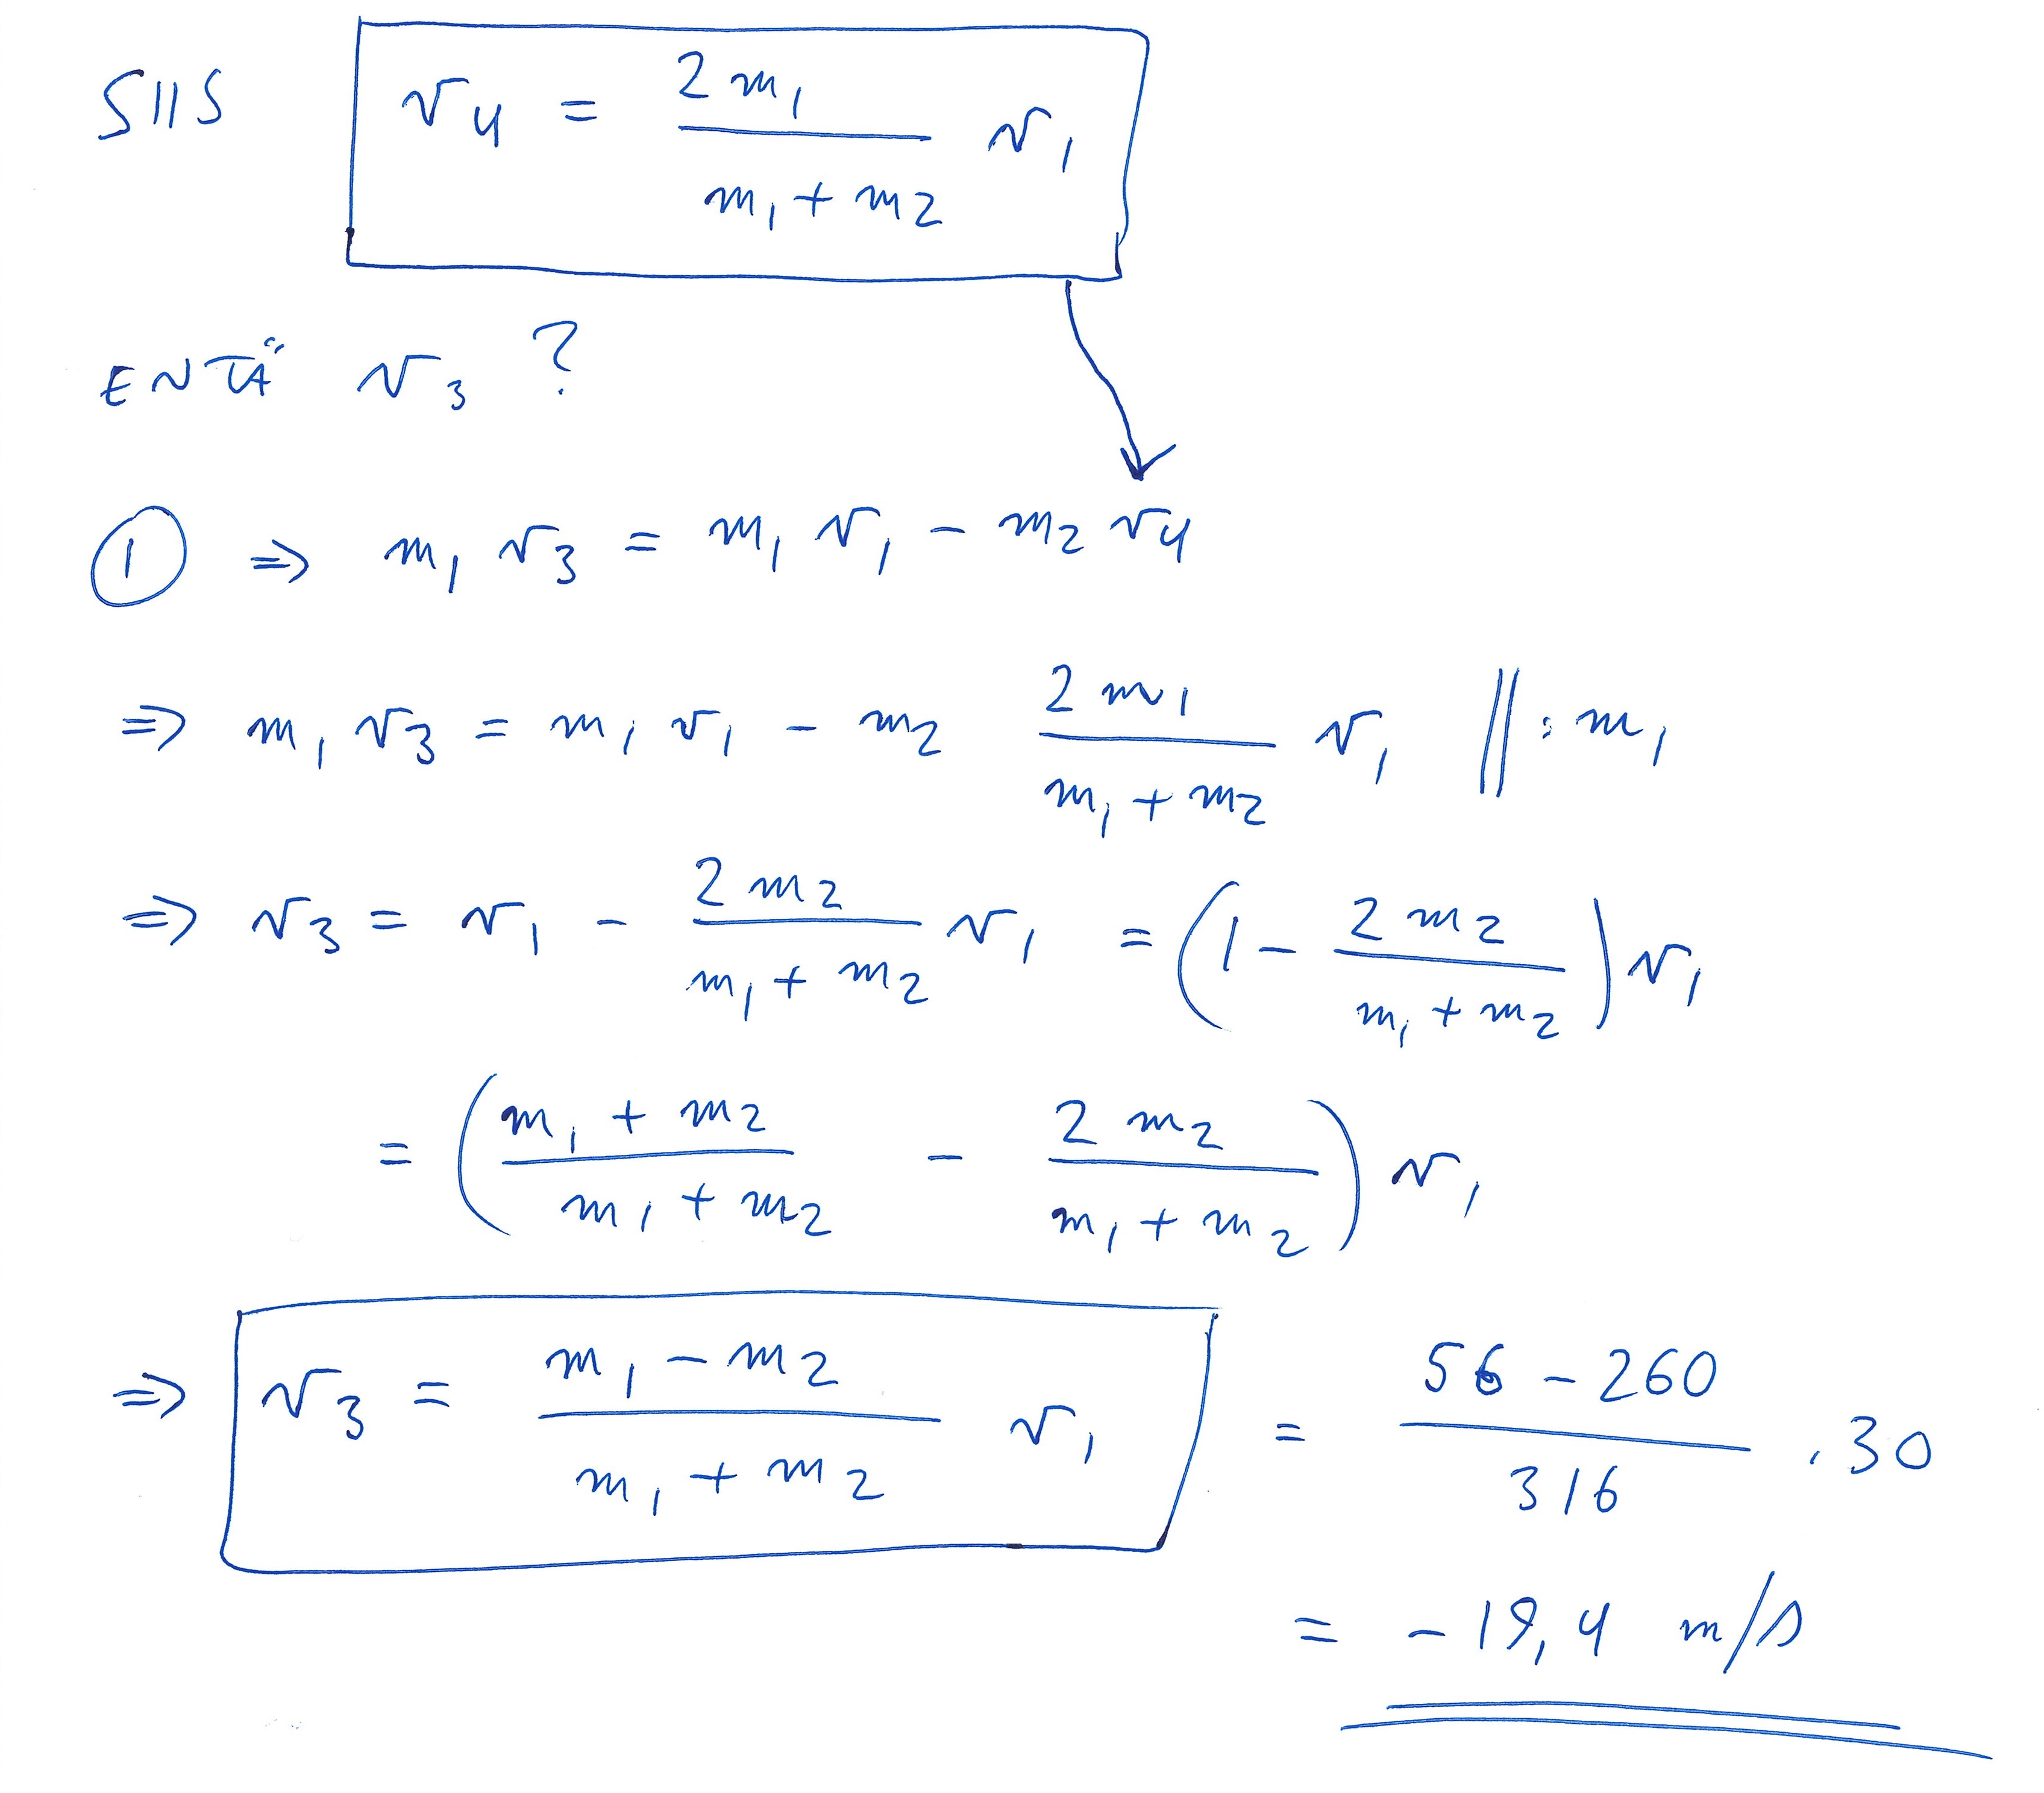 SIIS v₄ = 2 m₁ / (m₁ + m₂) v₁
ENTÄ v₃ ?
① ⇒ m₁ v₃ = m₁ v₁ − m₂ v₄
⇒ m₁ v₃ = m₁ v₁ − m₂ 2 m₁ / (m₁ + m₂) v₁ ‖ : m₁
⇒ v₃ = v₁ − 2 m₂ / (m₁ + m₂) v₁ = (1 − 2 m₂ / (m₁ + m₂)) v₁
= ((m₁ + m₂) / (m₁ + m₂) − 2 m₂ / (m₁ + m₂)) v₁
⇒ v₃ = (m₁ − m₂) / (m₁ + m₂) v₁ = (56 − 260) / 316 · 30
= −19,4 m/s